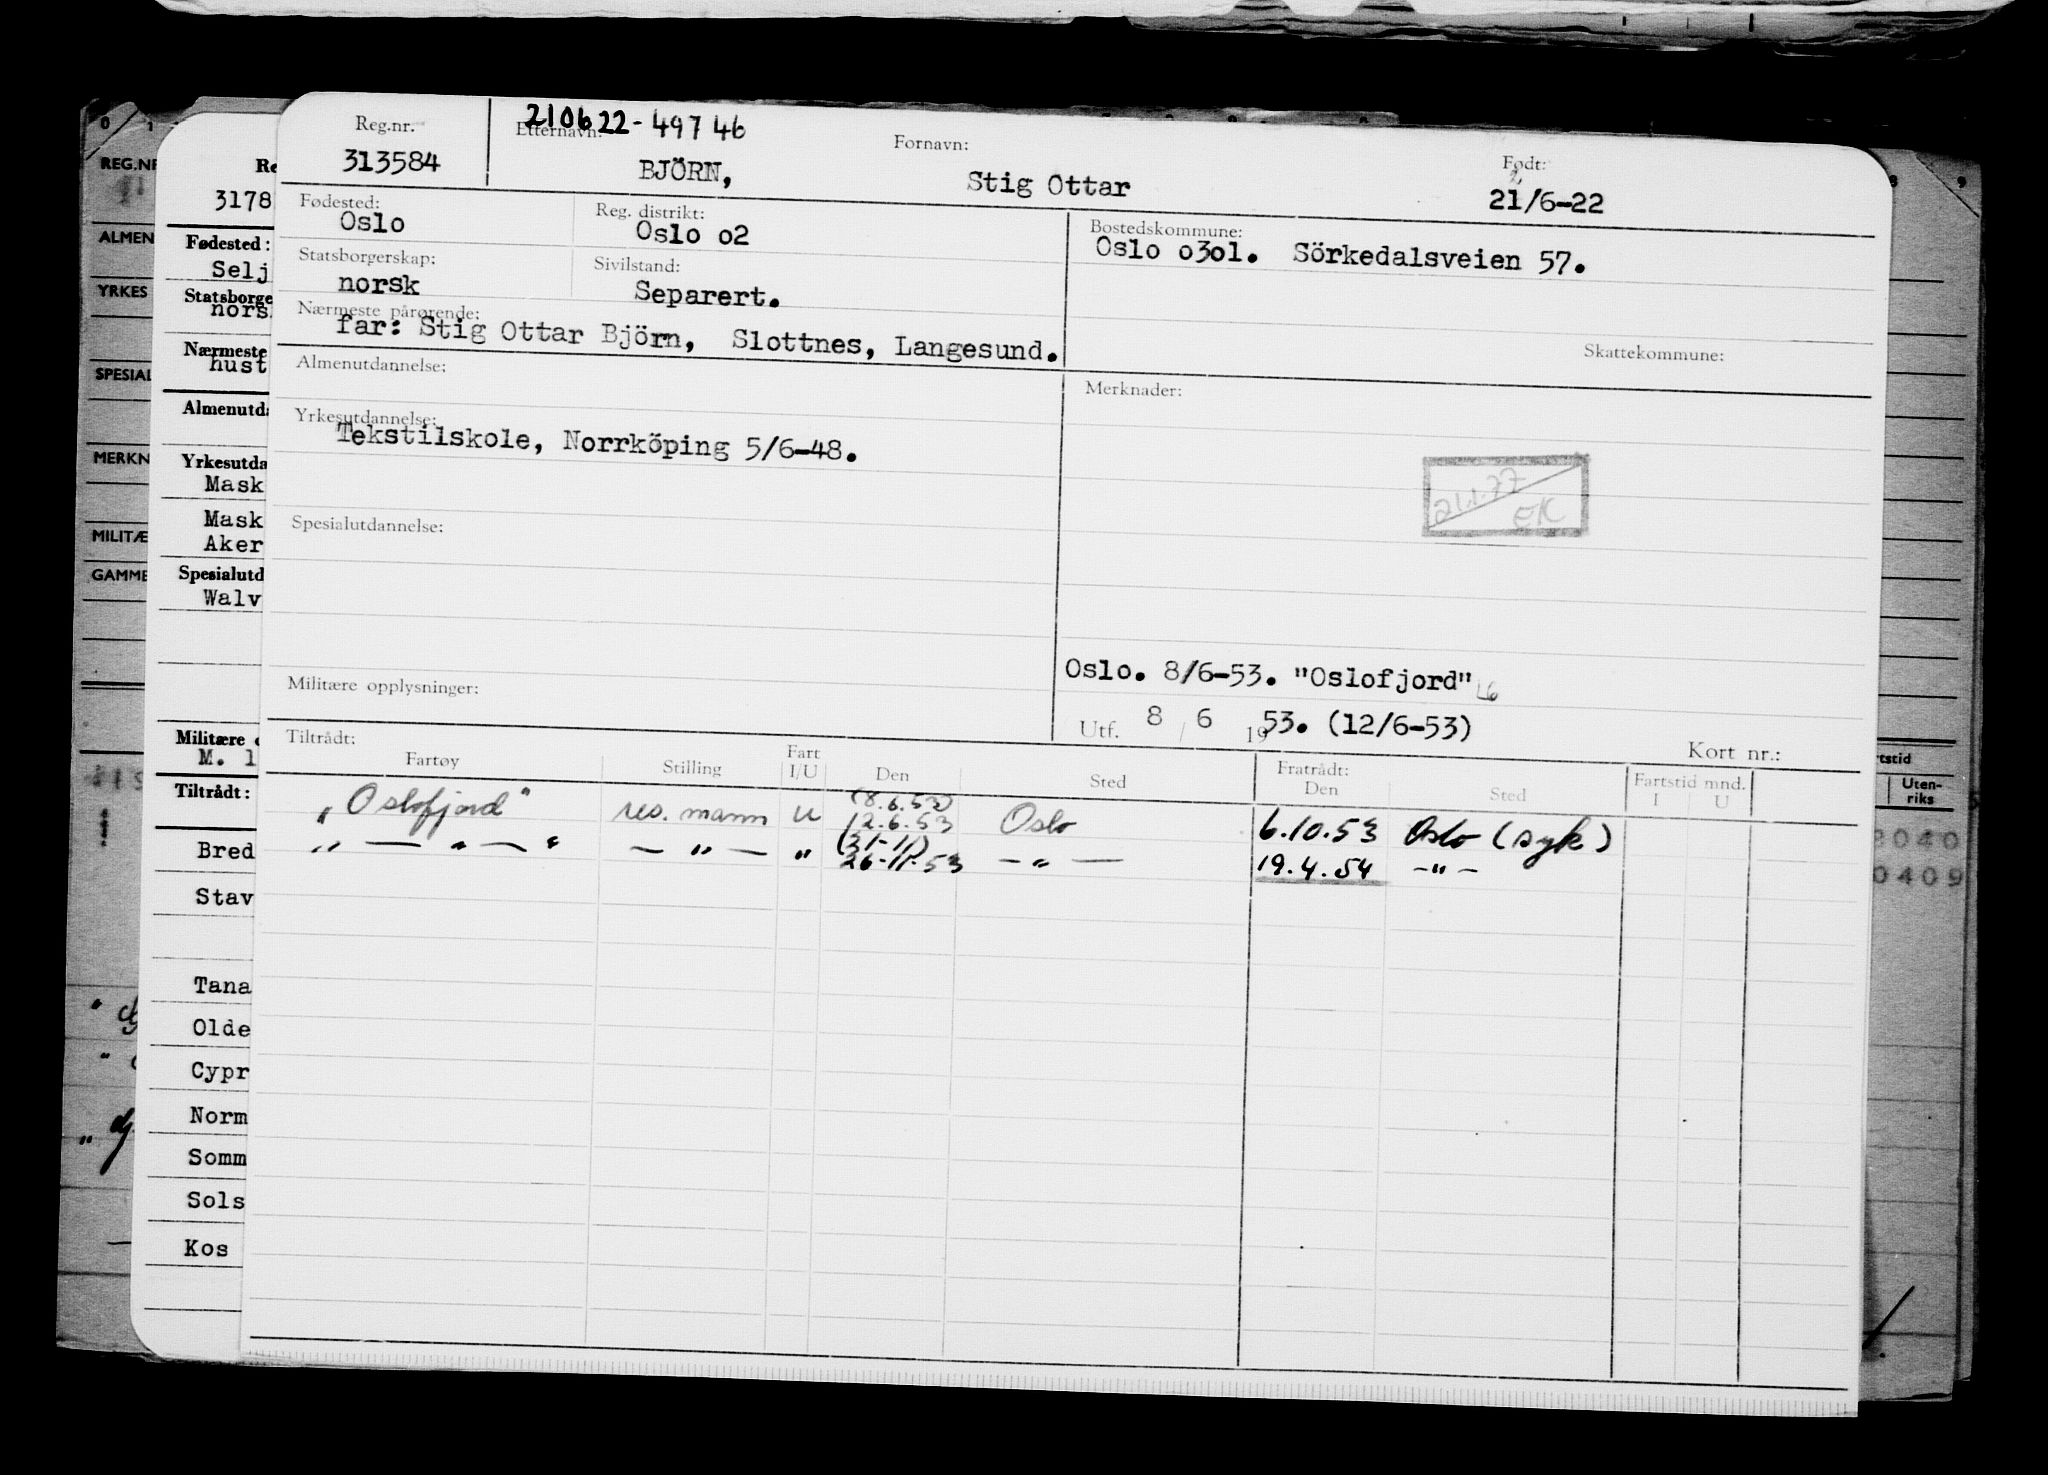 210622-49746
Reg.nr. Etternavn: Fornavn: Født:
313584 BJÖRN, Stig Ottar 21/6-22
Fødested: Reg. distrikt: Bostedskommune:
Oslo Oslo o2 Oslo o3ol. Sörkedalsveien 57.
Statsborgerskap: Sivilstand:
norsk Separert.
Nærmeste pårørende:
far: Stig Ottar Björn, Slottnes, Langesund.
Skattekommune:
Almenutdannelse: Merknader:
Yrkesutdannelse:
Tekstilskole, Norrköping 5/6-48.
21.1.77
EK
Spesialutdannelse:
Oslo. 8/6-53. "Oslofjord"
Militære opplysninger:
Utf. 8 / 6 1953. (12/6-53)
Kort nr.:
Tiltrådt: Fratrådt: Fartstid mnd.
Fartøy Stilling Fart I/U Den Sted Den Sted I U
(8.6.53)
„Oslofjord" res. mann u 12.6.53 Oslo 6.10.53 Oslo (syk)
(21-11)
„ — „ — " — „ — „ 26-11-53 — „ — 19.4.54 — „ —
REG.NR
ALMEN
YRKES
SPESIAL
MERKN
MILITÆ
GAMME
Re
3178
Fødested:
Selj
Statsborge
nors
Nærmeste
hust
Almenutda
Yrkesutda
Mask
Mask
Aker
Spesialutd
Walv
Militære o
M. 1
Tiltrådt:
Bred
Stav
Tana
Olde
Cypr
Norm
Somm
Sols
Kos
rtstid
Uten-
riks
8040
0409